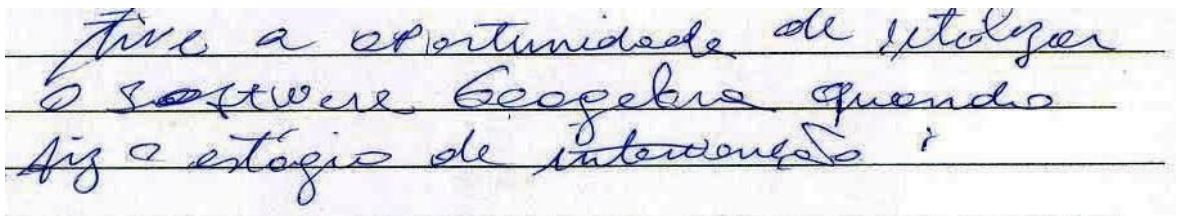 Tive a oportunidade de utilizar
o software Geogebra quando
fiz o estágio de intervenção ;